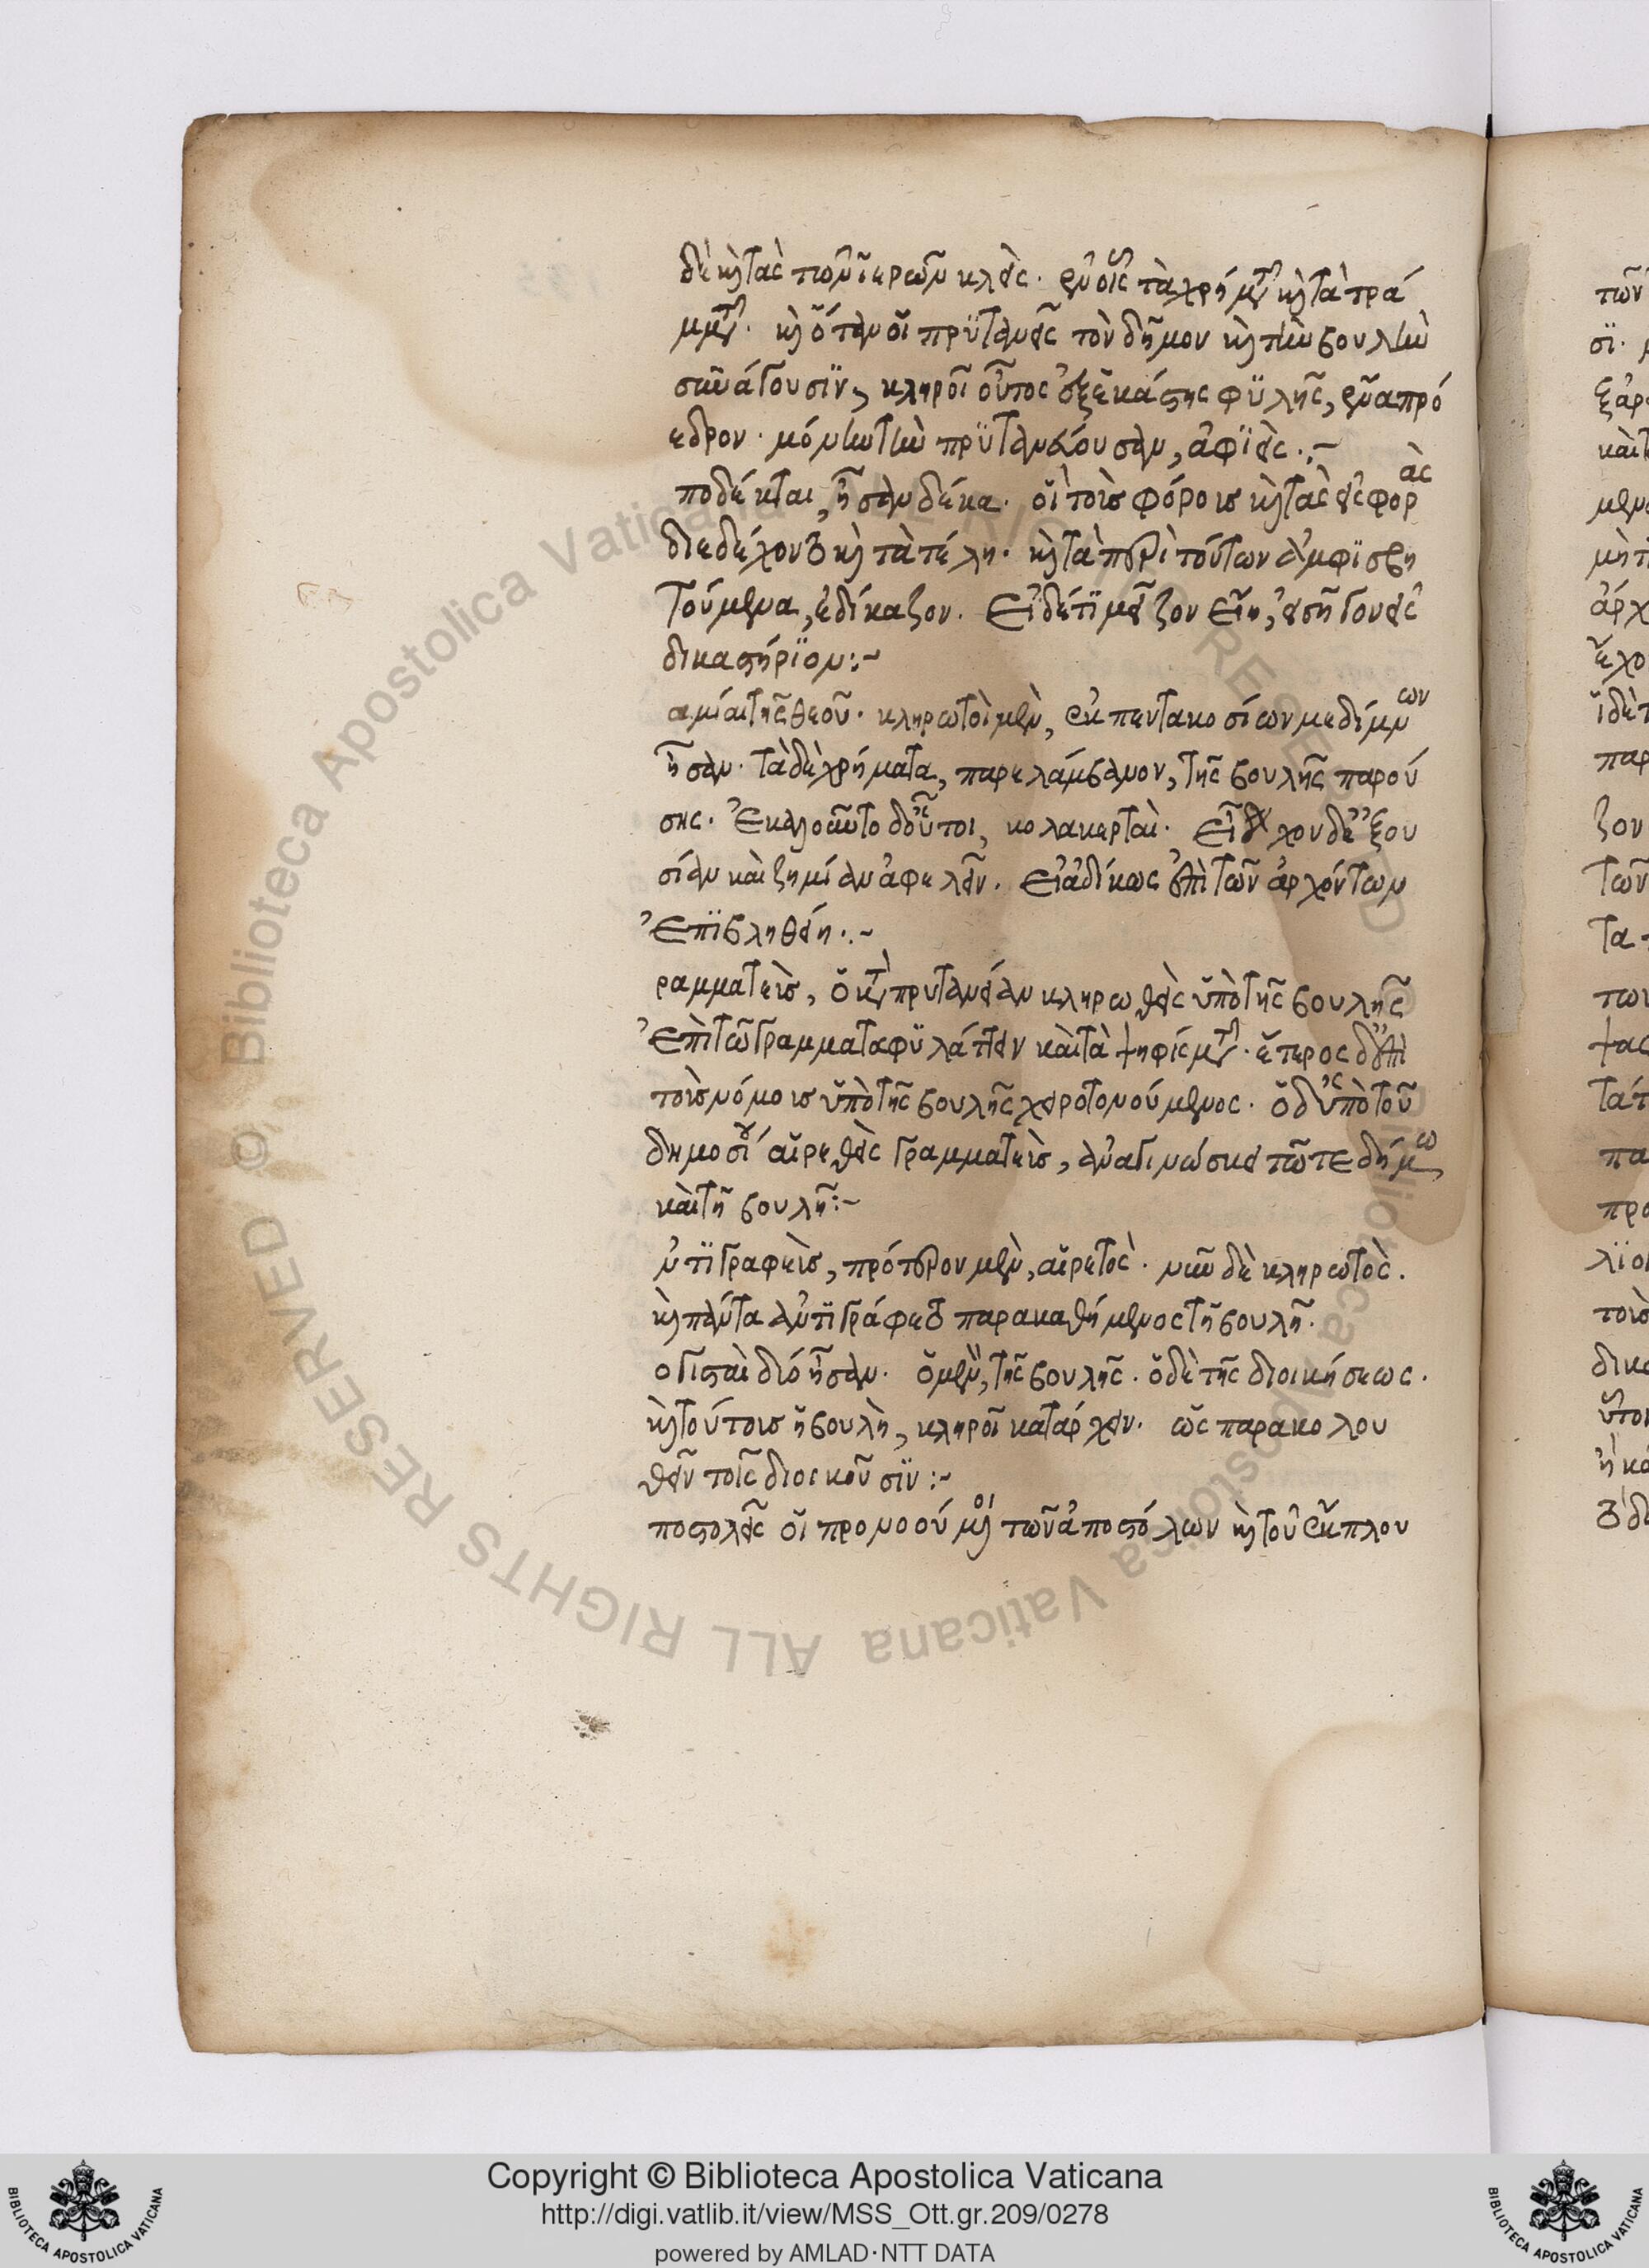 δὲ καὶ τὰς τῶν ἱερῶν κλεῖς. ἐν οἷς τὰ χρήματα καὶ τὰ γρά
μματα. καὶ ὅταν οἱ πρϋτάνεις τὸν δῆμον καὶ τὴν βουλὴν
συνάγουσϊν, κληροῖ οὗτος ἐξ ἑκάστης φϋλῆς, ἕνα πρό
εδρον. μόνην τὴν πρϋτανεύουσαν, ἀφϊείς.:~
ποδέκται, ἦσαν δέκα. οἳ τοὺς φόρους καὶ τὰς εἰσφορὰς
διεδέχοντο καὶ τὰ τέλη. καὶ τὰ περὶ τούτων ἀμφϊσβη
τούμενα, ἐδίκαζον. εἰ δέ τϊ μεῖζον εἴη, εἰσῆγον εἰς
δικαστήρϊον:~
αμίαι τῆς θεοῦ. κληρωτοὶ μὲν, ἐκ πεντακοσίων μεδίμνων
ἦσαν. τὰ δὲ χρήματα, παρελάμβανον, τῆς βουλῆς παρού
σης. Ἐκαλοῦντο δ' οὗτοι, κολακερταί. εἶχον δὲ ἐξου
σίαν καὶ ζημίαν ἀφελεῖν. εἰ ἀδίκως ἐπὶ τῶν ἀρχόντων
Ἐπϊβληθείη.:~
ραμματεὺς, ὁ κατὰ πρυτανείαν κληρωθεὶς ὑπὸ τῆς βουλῆς
Ἐπὶ τῶ γράμματα φϋλάττειν καὶ τὰ ψηφίσματα. ἕτερος δ' ἐπὶ
τοὺς νόμους ὑπὸ τῆς βουλῆς χειροτονούμενος. ὁ δ' ὑπὸ τοῦ
δημοσίου αἱρεθεὶς γραμματεὺς, ἀναγινώσκει τῶ τε δήμω,
καὶ τῆ βουλῆ:~
ντϊγραφεὺς, πρότερον μὲν, αἱρετὸς. νῦν δὲ κληρωτὸς.
καὶ πάντα ἀντϊγράφεται παρακαθήμενος τῆ βουλῆ.
ογισταὶ δύο ἦσαν. ὁ μὲν, τῆς βουλῆς. ὁ δὲ τῆς διοικήσεως.
καὶ τούτους ἡ βουλὴ, κληροῖ κατ' ἀρχὴν. ὡς παρακολου
θεῖν τοῖς διοικοῦσϊν:~
ποστολεῖς οἱ προνοούμενοι τῶν ἀποστόλων καὶ τοῦ ἔκπλου
Copyright © Biblioteca Apostolica Vaticana
http://digi.vatlib.it/view/MSS_Ott.gr.209/0278
powered by AMLAD·NTT DATA